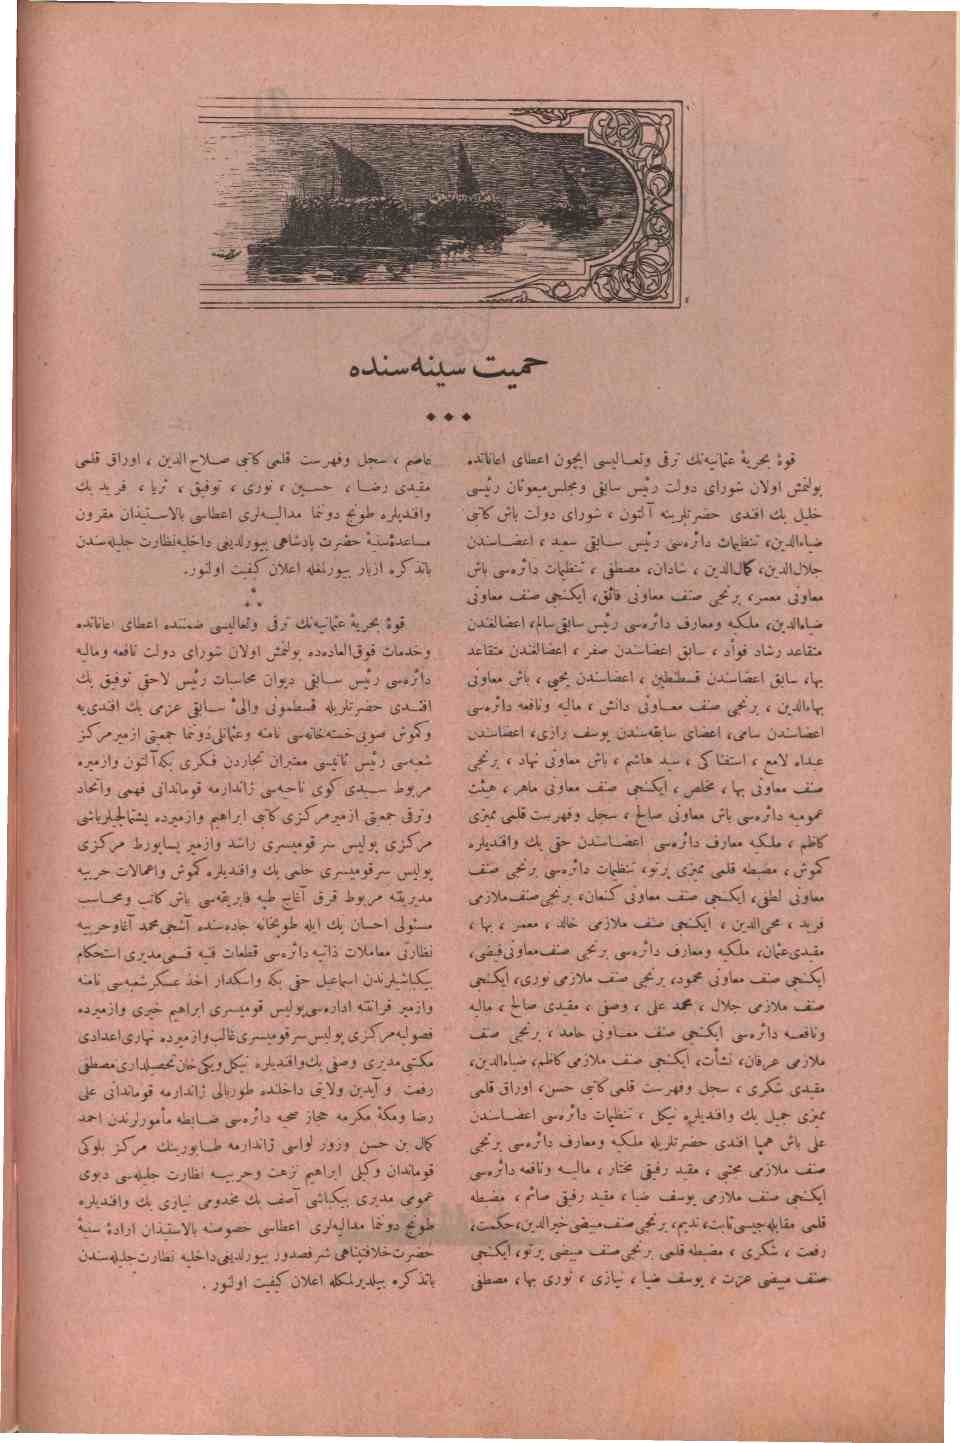 حمیت سینه‌سنده
قوهٔ بحریهٔ عثمانیه‌نك ترقی وتعـالیسی ایچون اعطای اعاناتده
بولنمش اولان شورای دولت رئیس سابقی ومجلس‌مبعوثان رئیسی
خلیل بك افندی حضرتلرینه آلتون ، شورای دولت باش كاتبی
ضیاءالدین، تنظیمات دائره‌سی رئیس سـابقی سعید ، اعضـاسندن
جلال‌الدین، كمال‌الدین ، شادان، مصطفی ، تنظیمات دائره‌سی باش
معاونی معمر، برنجی صنف معاونی فائق، ایكنجی صنف معاونی
ضیاءالدین، ملكیه ومعارف دائره‌سی رئیس سابقی سالم، اعضالغندن
متقاعد رشاد فوأد ، سابق اعضاسندن صفر ، اعضالغندن متقاعد
بهاء سابق اعضاسندن قسطنطین ، اعضاسندن یحیی ، باش معاونی
بهاءالدین ، برنجی صنف معـاونی دانش ، مالیه ونافعه دائره‌سی
اعضاسندن سامی، اعضای سابقه‌سندن یوسف رازی، اعضاسندن
عبداء لامع ، استفناكی ، سید هاشم ، باش معاونی نهاد ، برنجی
صنف معاونی بها ، مخلص ، ایكنجی صنف معاونی ماهر ، هیئت
عمومیه دائره‌سی باش معاونی صالح ، سجل وفهرست قلمی ممیزی
كاظم ، ملكیه معارف دائره‌سی اعضـاسندن حقی بك وافندیلره
كموش ، مضبطه قلمی ممیزی پرتو، تنظیمات دائره‌سی برنجی صنف
معاونی لطفی، ایكنجی صنف معاونی كنعان، برنجی صنف‌ملازمی
فرید ، محی‌الدین ، ایكنجی صنف ملازمی خالد ، معمر ، بها ،
مقیدی‌عثمان، ملكیه ومعارف دائره‌سی برنجی صنف‌معاونی‌فیضی،
ایكنجی صنف معاونی محمود، برنجی صنف ملازمی نوری، ایكنجی
صنف ملازمی جلال ، محمد علی ، وصفی ، مقیدی صالح ، مالیه
ونافعـه دائره‌سی ایكنجی صنف معـاونی حامد ، برنجی صنف
ملازمی عرفان، نشأت، ایكنجی صنف ملازمی كاظم، ضیاءالدین،
مقیدی شكری ، سجل وفهرست قلمی كاتبی حسن، اوراق قلمی
ممیزی جمیل بك وافندیلره نیكل ، تنظیمات دائره‌سی اعضـاسندن
علی باش همبا افندی حضرتلریله ملكیه ومعارف دائره‌سی برنجی
صنف ملازمی مجتبی ، مقید رفیقی مختار ، مالیـه ونافعه دائره‌سی
ایكنجی صنف ملازمی یوسف ضیا ، مقید رفیقی صائم ، مضبطه
قلمی مقابله‌جیسی ثابت، ندیم، برنجی صنف مبیضی خیرالدین، حكمت،
رفعت ، شكری ، مضبطه قلمی برنجی صنف مبیضی پرتو، ایكنجی
صنف مبیضی عزت ، یوسف ضیا ، نیازی ، نوری بها ، مصطفی
عاصم ، سجل وفهرست قلمی كاتبی صـلاح الدین ، اوراق قلمی
مقیدی رضـا ، حسـین ، نوری ، توفیق ، ثریا ، فرید بك
وافندیلره طونج دوننما مدالیـه‌لری اعطاسی بالاسـتیذان مقرون
مساعدهٔ‌سنیهٔ حضرت پادشاهی بیورلدیغی داخلیه‌نظارت جلیله‌سندن
باتذكره ازبار بیورلمغله اعلان كیفیت اولنور.
قوهٔ بحریهٔ عثمانیه‌نك ترقی وتعالیسی ضمننده اعطای اعاناتده
وخدمات فوق‌العاده‌ده بولنمش اولان شورای دولت نافعه ومالیه
دائره‌سی رئیس سـابقی دیوان محاسبات رئیس لاحقی توفیق بك
افنـدی حضرتلریله قسطمونی والیٔ سـابقی عزمی بك افندی‌یه
وكموش صوبی‌خسته‌خانه‌سی نامنه وعثمانلی‌دوننما جمعیتی ازمیرمركز
شعبه‌سی رئیس ثانیسی معتبران تجاردن فكری بكه‌آلتون وازمیره
مربوط سـیدی كوی ناحیه‌سی ژاندارمه قوماندانی فهمی واتحاد
وترقی جمعیتی ازمیرمركزی كاتبی ابراهیم وازمیرده پشتمالجیلرباشی
مركزی پولیس سر قومیسری راشد وازمیر پساپورط مركزی
پولیس سرقومیسری حلمی بك وافندیلره كموش واعمالات حربیه
مدیریتنه مربوط قرق آغاج طپه فابریقه‌سی باش كاتب ومحـاسب
مسئولی احسان بك ایله طوپخانه جاده‌سنده آشجی محمد آغاوحربیه
نظارتی معاملات ذاتیه دائره‌سی قطعات فنیه قسمی‌مدیری استحكام
بیكباشیلرندن اسماعیل حقی بكه واسكدار اخذ عسكرشعبه‌سی نامنه
وازمیر قرانتنه اداره‌سی‌پولیس قومیسری ابراهیم خیری وازمیرده
فصولیه‌مركزی پولیس سرقومیسری‌غالب‌وازمیرده نهاری‌اعدادی
مكتبی مدیری وصفی بك‌وافندیلره نیكل ویكی‌خان‌تحصیلداری‌مصطفی
رفعت و آیدین ولایتی داخلنده طوربالی ژاندارمه قوماندانی علی
رضا ومكهٔ مكرمه حجاز صحیه دائره‌سی ضـابطه مأمورلرندن احمد
كمال بن حسن وزور لواسی ژاندارمه طـابورینك مركز بلوكی
قوماندان وكیلی ابراهیم نزهت وحربیـه نظارت جلیله‌سی دیوی
عمومی مدیری بیكباشی آصف بك مخدومی نیازی بك وافندیلره
طونج دوننما مدالیه‌لری اعطاسی خصوصنه بالاسـتیذان ارادهٔ سنیهٔ
حضرت‌خلافتپناهی شرفصدور بیورلدیغی‌داخلیه نظارت جلیله‌سندن
باتذكره بیلدیرلمكله اعلان كیفیت اولنور .